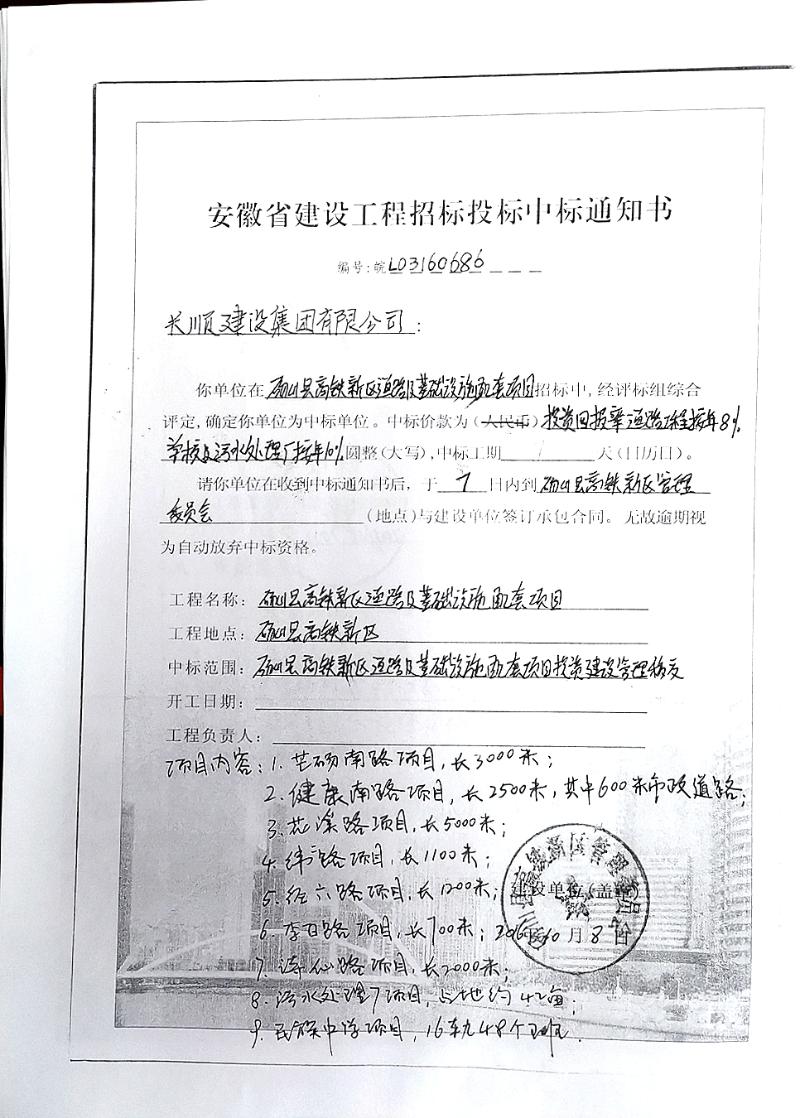 安徽省建设工程招标投标中标通知书
编号:皖L03160686
长顺建设集团有限公司:
你单位在砀山县高铁新区道路及基础设施配套项目招标中,经评标组综合
评定,确定你单位为中标单位。中标价款为(人民币)投资回报率道路工程按年8%
学校及污水处理厂按年10%圆整(大写),中标工期 / 天(日历日)。
请你单位在收到中标通知书后,于7日内到砀山县高铁新区管理
委员会(地点)与建设单位签订承包合同。无故逾期视
为自动放弃中标资格。
工程名称:砀山县高铁新区道路及基础设施配套项目
工程地点:砀山县高铁新区
中标范围:砀山县高铁新区道路及基础设施配套项目投资建设管理移交
开工日期:
工程负责人:
项目内容:1.芒砀南路项目,长3000米;
2.健康南路项目,长2500米,其中600米市政道路;
3.花溪路项目,长5000米;
4.纬 路项目,长1100米;
5.经六路项目,长1200米;
建设单位(盖章)
6.李白路项目,长700米;
2016年10月8日
7. 路项目,长2000米;
8.污水处理厂项目,占地约42亩;
9.民族中学项目,16轨48个班.
高铁新区管理委员会